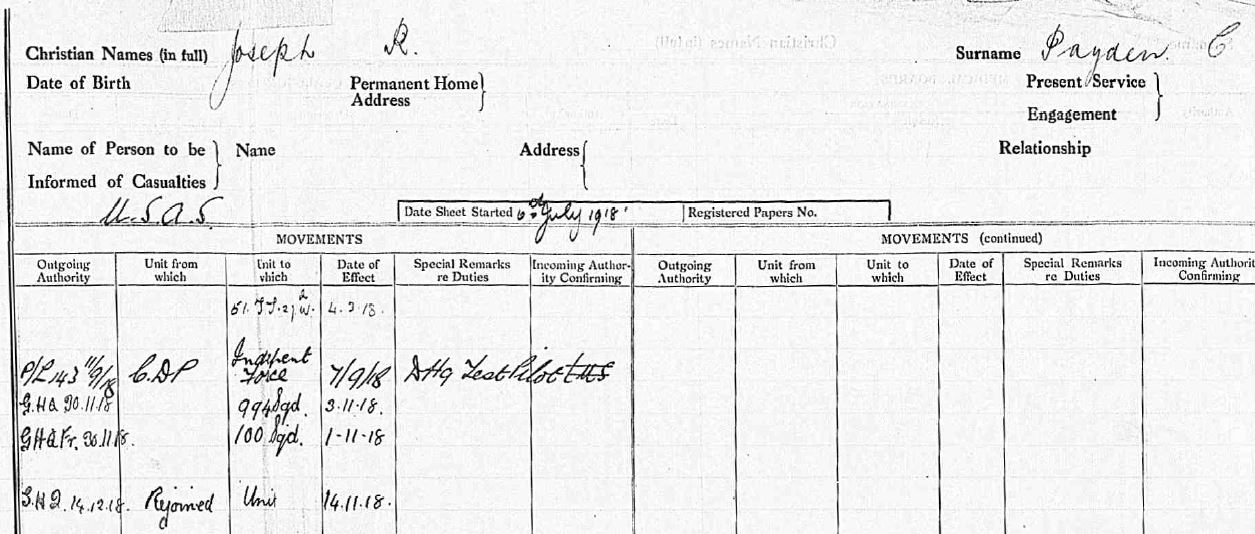 Christian Names (in full) Joseph R. Surname Payden C
Date of Birth Permanent Home Address Present Service Engagement
Name of Person to be Informed of Casualties Name Address Relationship
U.S.A.S. Date Sheet Started 6th July 1918 Registered Papers No.
MOVEMENTS MOVEMENTS (continued)
Outgoing Authority Unit from which Unit to which Date of Effect Special Remarks re Duties Incoming Authority Confirming Outgoing Authority Unit from which Unit to which Date of Effect Special Remarks re Duties Incoming Authority Confirming
4.3.18.
P/L 143 11/9/18 C.D.P Indpent Force 7/9/18 DH9 Test Pilot
G.HQ 30.11.18 99 Sqd. 3.11.18.
GHQ Fr. 30.11.18. 100 Sqd. 1-11-18
G.H.Q. 14.12.18. Rejoined Unit 14.11.18.